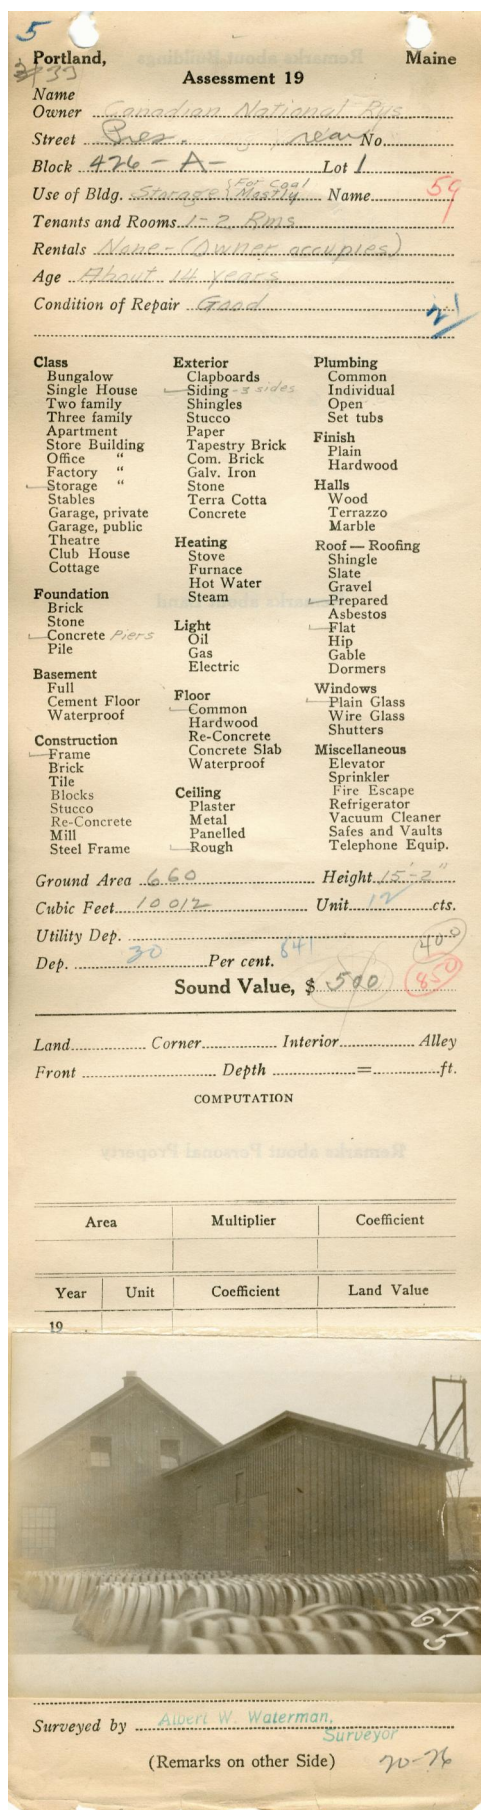 5
Portland, Maine
Assessment 19
Name
Owner Canadian National Rys
Street Pres. rear No.
Block 426-A- Lot 1
Use of Bldg. Storage {For Coal Mostly Name 59
Tenants and Rooms 1-2 Rms
Rentals None-(Owner occupies)
Age About 14 years
Condition of Repair Good 21
Class
Bungalow
Single House
Two family
Three family
Apartment
Store Building
Office "
Factory "
Storage "
Stables
Garage, private
Garage, public
Theatre
Club House
Cottage
Foundation
Brick
Stone
Concrete Piers
Pile
Basement
Full
Cement Floor
Waterproof
Construction
Frame
Brick
Tile
Blocks
Stucco
Re-Concrete
Mill
Steel Frame
Exterior
Clapboards
Siding - 3 sides
Shingles
Stucco
Paper
Tapestry Brick
Com. Brick
Galv. Iron
Stone
Terra Cotta
Concrete
Heating
Stove
Furnace
Hot Water
Steam
Light
Oil
Gas
Electric
Floor
Common
Hardwood
Re-Concrete
Concrete Slab
Waterproof
Ceiling
Plaster
Metal
Panelled
Rough
Plumbing
Common
Individual
Open
Set tubs
Finish
Plain
Hardwood
Halls
Wood
Terrazzo
Marble
Roof — Roofing
Shingle
Slate
Gravel
Prepared
Asbestos
Flat
Hip
Gable
Dormers
Windows
Plain Glass
Wire Glass
Shutters
Miscellaneous
Elevator
Sprinkler
Fire Escape
Refrigerator
Vacuum Cleaner
Safes and Vaults
Telephone Equip.
Ground Area 660 Height 15'-2"
Cubic Feet 10012 Unit 12 cts.
Utility Dep. 400
Dep. 30 Per cent. 841
Sound Value, $ 500 850
Land Corner Interior Alley
Front Depth = ft.
COMPUTATION
Area Multiplier Coefficient
Year Unit Coefficient Land Value
19
67
5
Surveyed by Albert W. Waterman,
Surveyor
(Remarks on other Side) 20-26